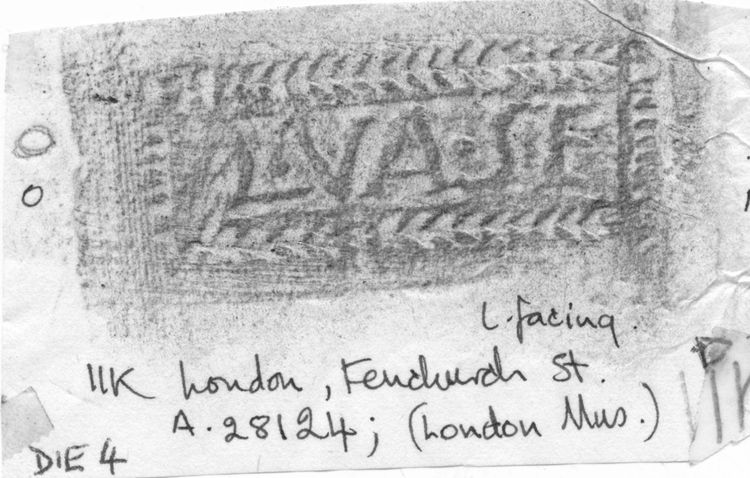 L·VA·SE
L. facing.
11K London, Fenchurch St.
A.28124; (London Mus.)
DIE 4